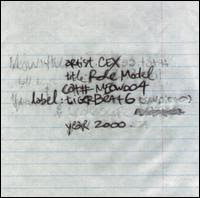 artist. CEX
title Role Model
cat# MEOW004
label: tiGERBEAt6
year 2000.